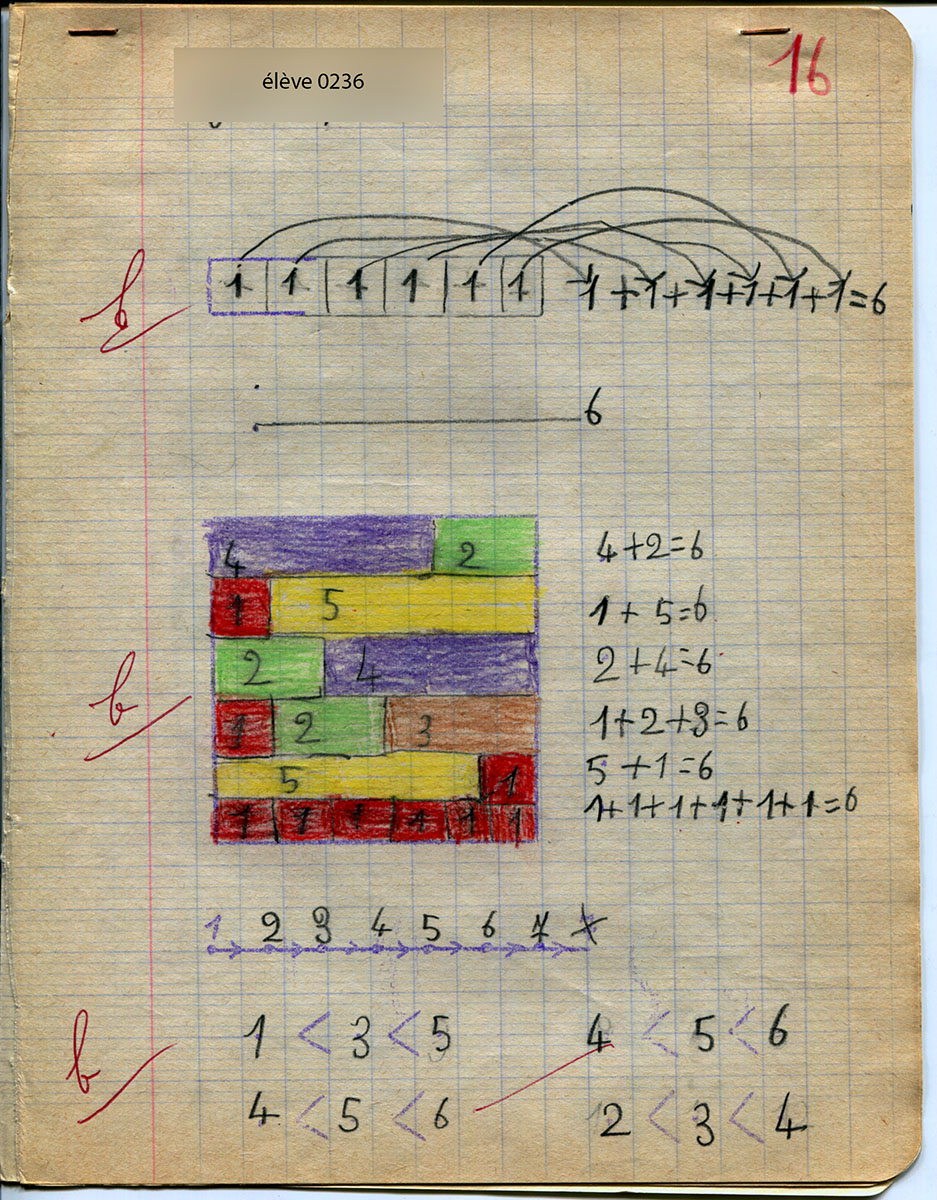 élève 0236
16
b 1 1 1 1 1 1 1+1+1+1+1+1=6
6
4 2 4+2=6
1 5 1+5=6
2 4 2+4=6
b 1 2 3 1+2+3=6
5 1 5+1=6
1 1 1 1 1 1 1+1+1+1+1+1=6
1 2 3 4 5 6 7
b 1 < 3 < 5 4 < 5 < 6
4 < 5 < 6 2 < 3 < 4